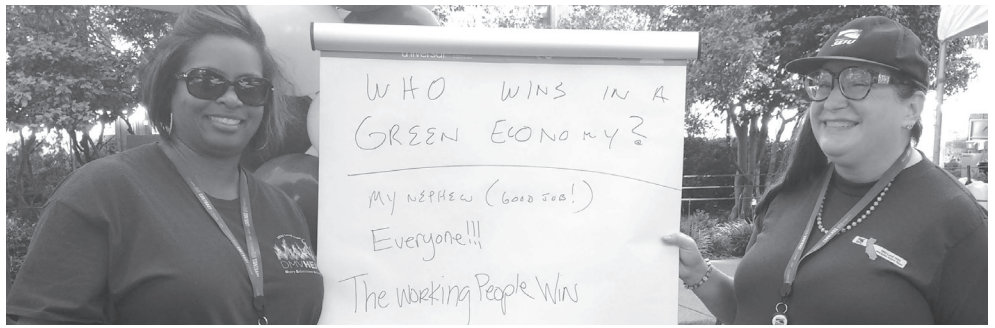 universal
WHO WINS IN A
GREEN ECONOMY?
MY NEPHEW (GOOD JOB!)
Everyone!!!
The Working People Win
SEIU